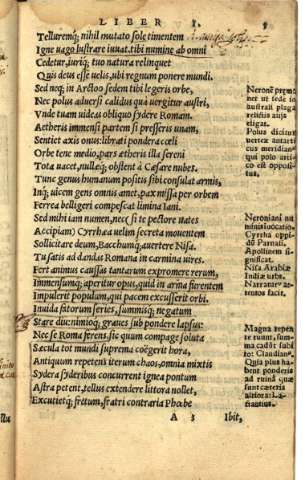 LIBER I. 5
Telluremq; nihil mutato sole timentem
Igne uago lustrare iuuat. tibi numine ab omni
Cedetur, iurisq; tuo natura relinquet
Quis deus esse uelis, ubi regnum ponere mundi.
Sed neq; in Arctoo sedem tibi legeris orbe,
Nec polus aduersi calidus quà uergitur austri,
Vnde tuam uideas obliquo sydere Romam.
Aetheris immensi partem si presseris unam,
Sentiet axis onus. librati pondera cœli
Orbe tene medio, pars ætheris illa sereni
Tota uacet, nullæq; obstent à Cæsare nubes.
Tunc genus humanum positis sibi consulat armis,
Inq; uicem gens omnis amet, pax missa per orbem
Ferrea belligeri compescat limina Iani.
Sed mihi iam numen, nec si te pectore uates
Accipiam) Cyrrhæa uelim secreta mouentem
Sollicitare deum, Bacchumq; auertere Nisa.
Tu satis ad dandas Romana in carmina uires.
Fert animus causas tantarum expromere rerum,
Immensumq; aperitur opus, quid in arma furentem
Impulerit populum, quid pacem excusserit orbi.
Inuida fatorum series, summisq; negatum
Stare diu: nimioq; graues sub pondere lapsus:
Nec se Roma ferens. sic quum compage soluta
Sæcula tot mundi suprema coëgerit hora,
Antiquum repetent iterum chaos, omnia mixtis
Sydera syderibus concurrent: ignea pontum
Astra petent, tellus extendere littora nollet,
Excutietq; fretum, fratri contraria Phœbe
A 3 Ibit,
Neronē premo
ner ut sede in
lustrali plaga
relictis auja
eligat.
Polus diciturs
uertex antarti
cus meridianꝰ
qui polo arcti
co est opposi-
tus.
Neroniani nu
minis
Cyrrha oppi-
dū Parnasi.
Apollinem si-
gnificat.
Nisa Arabiæ
Indiæ urbs.
Narrant
tentos facit.
Magna repe
te ruunt, sum-
ma cadūt subi
tò: Claudian⁹.
Quia plus ha
bent ponderis
ad ruinā quæ
sunt cæteris
altiora.